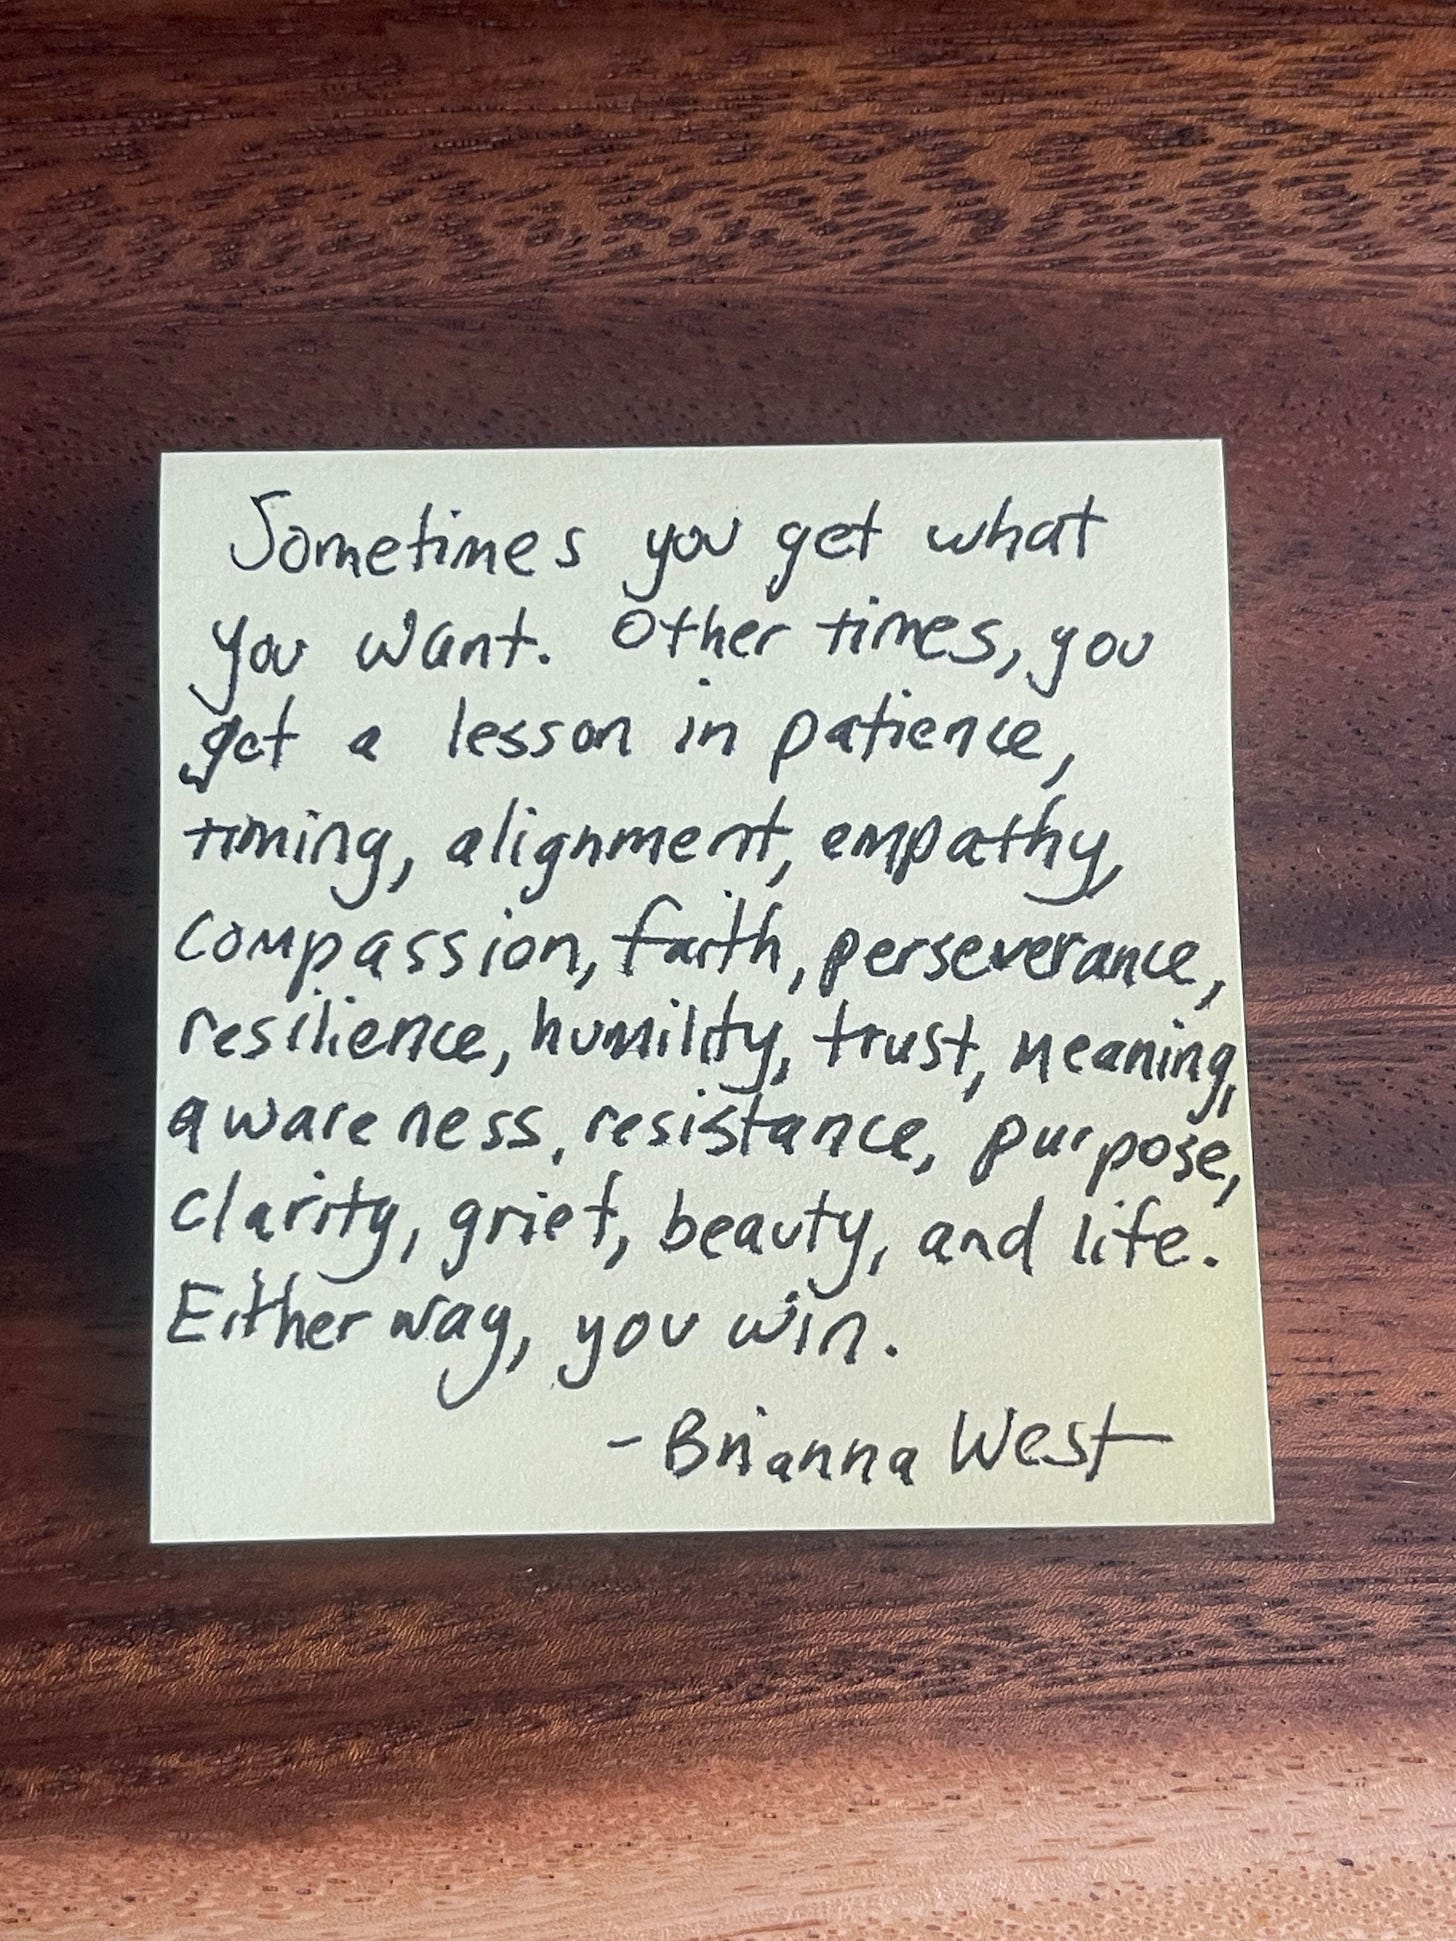 Sometimes you get what
you want. Other times, you
get a lesson in patience,
timing, alignment, empathy,
compassion, faith, perseverance,
resilience, humility, trust, meaning,
awareness, resistance, purpose,
clarity, grief, beauty, and life.
Either way, you win.
-Brianna West